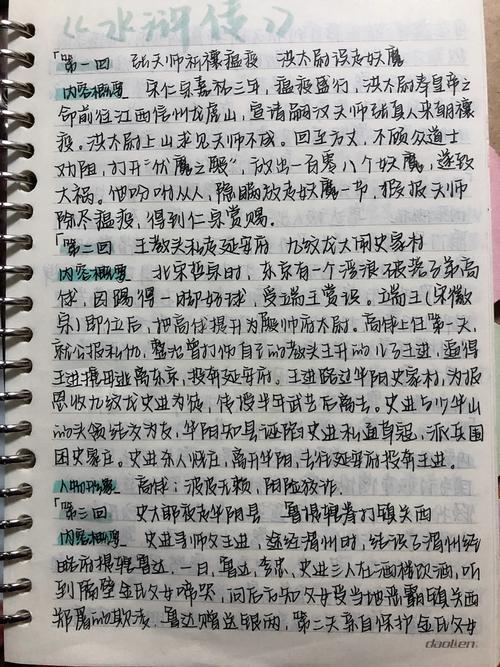 《水浒传》
「第一回 张天师祈禳瘟疫 洪太尉误走妖魔
内容概要 宋仁宗嘉祐三年，瘟疫盛行，洪太尉奉皇帝之
命前往江西信州龙虎山，宣请嗣汉天师张真人来朝禳
疫。洪太尉上山求见天师不成。回至方丈，不顾众道士
劝阻，打开"伏魔之殿"，放出一百零八个妖魔，遂致
大祸。他吩咐从人，隐瞒放走妖魔一节，假报天师
除尽瘟疫，得到仁宗赏赐。
「第二回 王教头私走延安府 九纹龙大闹史家村
内容概要 北宋哲宗时，东京有一个浮浪破落子弟高
俅，因踢得一脚好球，受端王赏识。端王（宋徽
宗）即位后，把高俅提升为殿帅府太尉。高俅上任第一天，
就公报私仇，整治曾打伤自己的教头王升的儿子王进，逼得
王进携母逃离东京，投奔延安府。王进路过华阴史家村，为报
恩收九纹龙史进为徒，传授半年武艺后离去。史进与少华山
的头领结交为友，华阴知县诬陷史进私通草寇，派兵围
困史家庄。史进杀人烧庄，离开华阴，去往延安府投奔王进。
人物形象 高俅：泼皮无赖，阴险放诈。
「第三回 史大郎夜走华阴县 鲁提辖拳打镇关西
内容概要 史进寻师父王进，途经渭州时，结识了渭州经
略府提辖鲁达。一日，鲁达，李忠，史进三人在酒楼饮酒，听
到隔壁金氏父女啼哭，问后方知父女受当地恶霸镇关西
郑屠的欺凌，鲁达赠送银两，第二天亲自保护金氏父女
daolien.